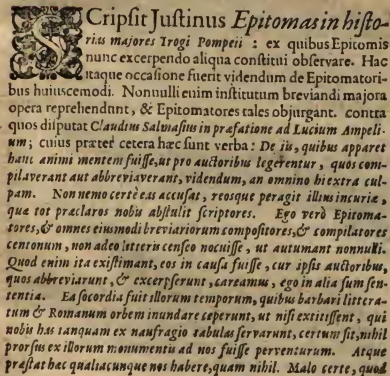 SCripsit Justinus Epitomas in histo-
rias majores Trogi Pompeii : ex quibus Epitomis
nunc excerpendo aliqua constitui observare. Hac
itaque occasione fuerit videndum de Epitomatori-
bus huiuscemodi. Nonnulli enim institutum breviandi majora
opera reprehendunt, & Epitomatores tales objurgant. contra
quos disputat Claudius Salmasius in præfatione ad Lucium Ampeli-
um; cuius præter cetera hæc sunt verba: De iis, quibus apparet
hanc animi mentem fuisse, ut pro auctoribus legerentur, quos com-
pilaverant aut abbreviaverant, videndum, an omnino hi extra cul-
pam. Non nemo certè eas accusat, reosque peragit illius incuriæ,
qua tot præclaros nobis abstulit scriptores. Ego verò Epitoma-
tores, & omnes eiusmodi breviariorum compositores, & compilatores
centonum, non adeo litteris censeo nocuisse, ut autumant nonnulli.
Quod enim ita existimant, eos in causa fuisse, cur ipsis auctoribus,
quos abbreviarunt, & excerpserunt, careamus, ego in alia sum sen-
tentia. Ea socordia fuit illorum temporum, quibus barbari littera-
tum & Romanum orbem inundare ceperunt, ut nisi extitissent, qui
nobis has tanquam ex naufragio tabulas servarunt, certum sit, nihil
prorsus ex illorum monumentis ad nos fuisse perventurum. Atque
præstat hac qualiacunque nos habere, quam nihil. Malo certe, quod